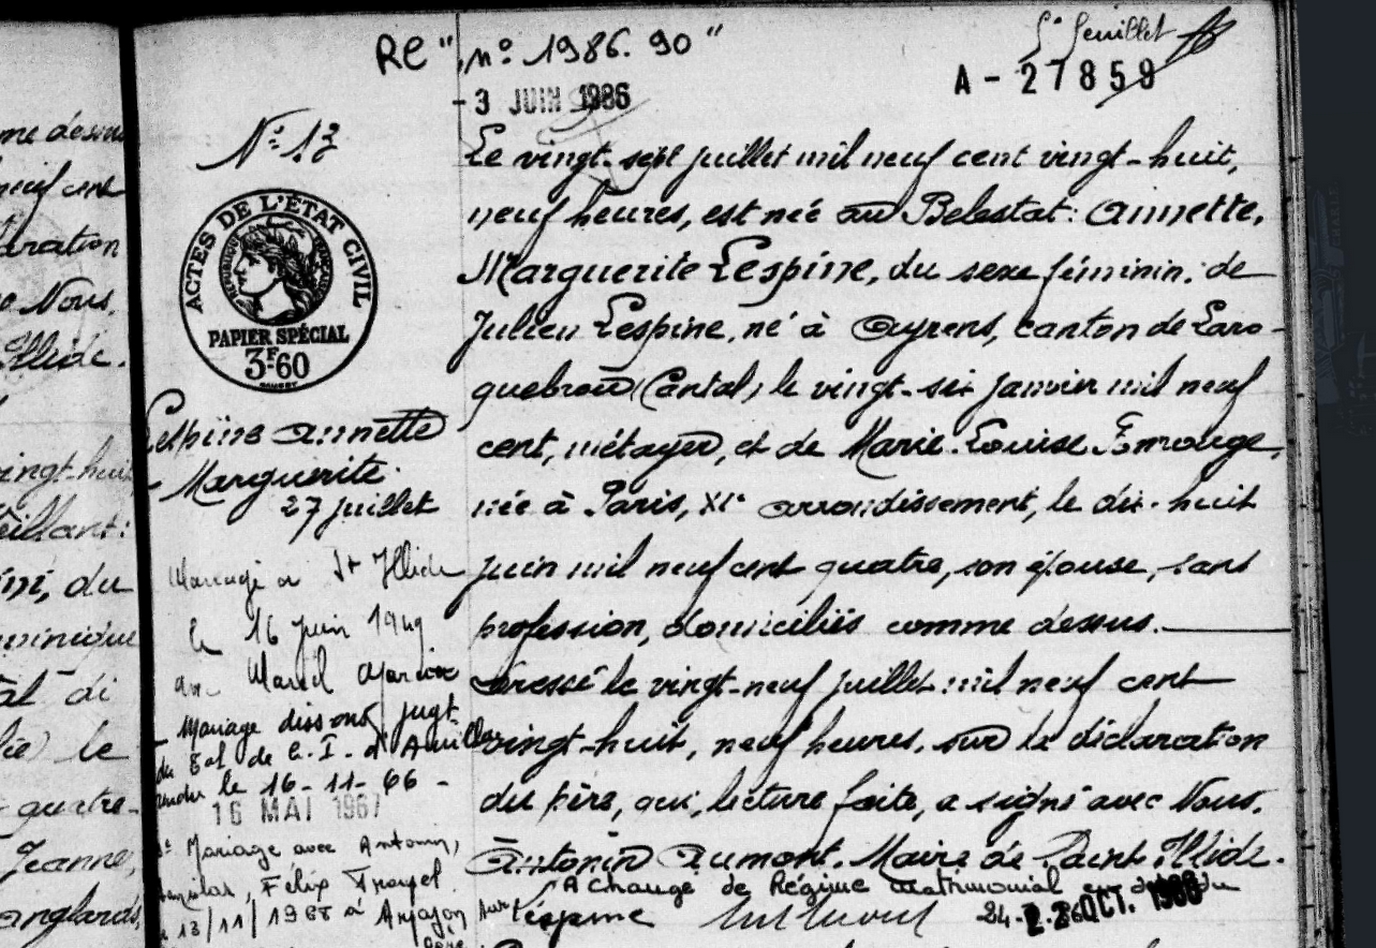 RC "n° 1986. 90"
5e feuillet
A - 27859
- 3 JUIN 1986
N° 13
ACTES DE L'ÉTAT CIVIL
PAPIER SPÉCIAL
3F60
Lespine Annette
Marguerite
27 juillet
Mariage a St Illide
le 16 juin 1949
Marcel
Mariage dissous jugt
du de G. I. d'Aurillac
rendu le 16-11-66 -
16 MAI 1967
Mariage avec Antonin,
Félix
13/11/1968 à
Le vingt-sept juillet mil neuf cent vingt-huit,
neuf heures, est née au Belestat: Annette,
Marguerite Lespine, du sexe féminin; de
Julien Lespine, né à Ayrens, canton de Laro-
quebrou (Cantal) le vingt-six janvier mil neuf
cent, métayer, et de Marie-Louise
née à Paris, XIe arrondissement, le dix-huit
juin mil neuf cent quatre, son épouse, sans
profession, domiciliés comme dessus.
Dressé le vingt-neuf juillet mil neuf cent
vingt-huit, neuf heures, sur la déclaration
du père, qui, lecture faite, a signé avec Nous,
Antonin Aumont, Maire de Saint-Illide.
A changé de Régime matrimonial
Léspine
OCT.
me dessus
neuf cent
aration
Nous,
Illide.
vingt-huit
du
minique
di
le
quatre-
Jeanne,
anglards,